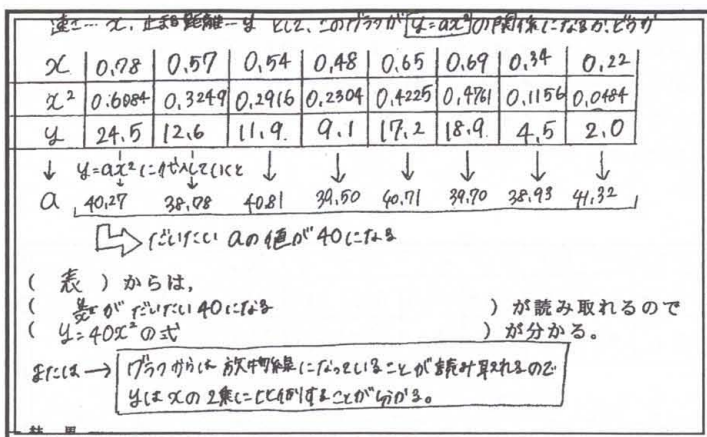 速さ…x, 止まる距離…y として、このグラフが y=ax² の関係になるか、どうか
x 0.78 0.57 0.54 0.48 0.65 0.69 0.34 0.22
x² 0.6084 0.3249 0.2916 0.2304 0.4225 0.4761 0.1156 0.0484
y 24.5 12.6 11.9. 9.1 17.2 18.9. 4.5 2.0
↓ y=ax²に代入していくと ↓ ↓ ↓ ↓ ↓ ↓
a 40.27 38.78 40.81 39.50 40.71 39.70 38.93 41.32
だいたい aの値が40になる
( 表 )からは,
( がだいたい40になる )が読み取れるので
( y=40x²の式 )が分かる。
または→ グラフからは放物線になっていることが読み取れるので
yはxの2乗に比例することが分かる。
結 果